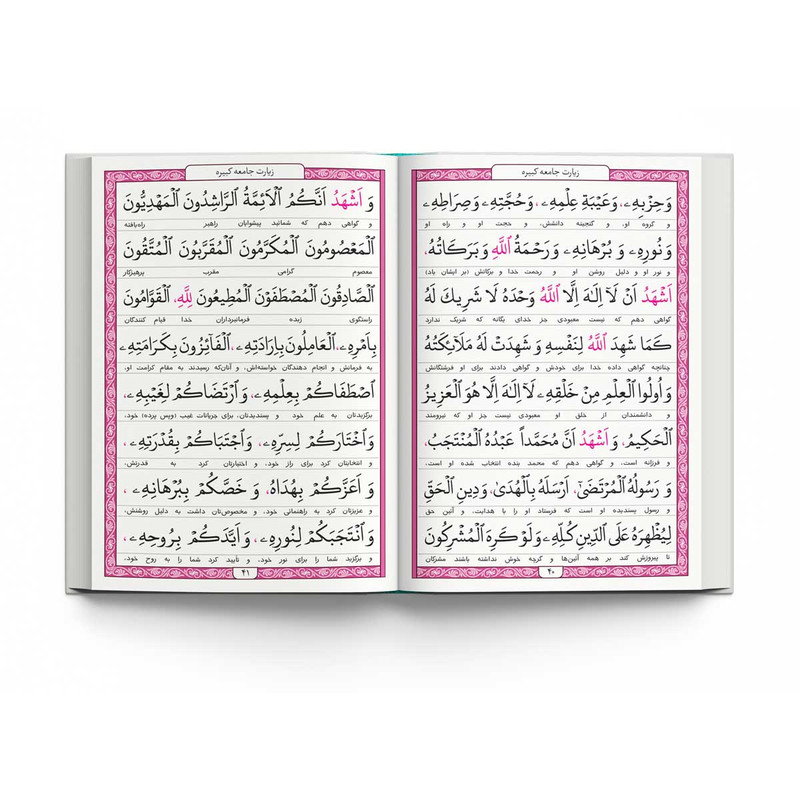 زیارت جامعه کبیره
وَحِزْبِهِ، وَعَیْبَةِ عِلْمِهِ، وَحُجَّتِهِ وَصِرَاطِهِ
و گروه او، و گنجینه دانشش، و حجت او و راه او
وَنُورِهِ وَ بُرْهَانِهِ وَرَحْمَةُ اللّٰهِ وَبَرَكَاتُهُ،
و نور او و دلیل روشن او و رحمت خدا و برکاتش (بر ایشان باد)
اَشْهَدُ اَنْ لَآ اِلٰهَ اِلَّا اللّٰهُ وَحْدَهُ لَا شَرِیكَ لَهُ
گواهی دهم که نیست معبودی جز خدای یگانه که شریک ندارد
كَمَا شَهِدَ اللّٰهُ لِنَفْسِهِ وَ شَهِدَتْ لَهُ مَلَآئِكَتُهُ
چنانچه گواهی داده خدا برای خودش و گواهی دادند برای او فرشتگانش
وَ اُولُوا الْعِلْمِ مِنْ خَلْقِهِ، لَآ اِلٰهَ اِلَّا هُوَ الْعَزِیزُ
و دانشمندان از خلق او معبودی نیست جز او که نیرومند
الْحَكِیمُ، وَ اَشْهَدُ اَنَّ مُحَمَّداً عَبْدُهُ الْمُنْتَجَبُ،
و فرزانه است، و گواهی دهم که محمد بنده انتخاب شده او است،
وَ رَسُولُهُ الْمُرْتَضَىٰ، اَرْسَلَهُ بِالْهُدَىٰ، وَدِینِ الْحَقِّ
و رسول پسندیده او است که فرستاد او را با هدایت، و آئین حق
لِیُظْهِرَهُ عَلَى الدِّینِ كُلِّهِ، وَلَوْ كَرِهَ الْمُشْرِكُونَ
تا پیروزش کند بر همه آئین‌ها و گرچه خوش نداشته باشند مشرکان
۴۰
زیارت جامعه کبیره
وَ اَشْهَدُ اَنَّكُمُ الْاَئِمَّةُ الرَّاشِدُونَ الْمَهْدِیُّونَ
و گواهی دهم که شمائید پیشوایان راهبر راه‌یافته
الْمَعْصُومُونَ الْمُكَرَّمُونَ الْمُقَرَّبُونَ الْمُتَّقُونَ
معصوم گرامی مقرب پرهیزکار
الصَّادِقُونَ الْمُصْطَفَوْنَ الْمُطِیعُونَ لِلّٰهِ، الْقَوَّامُونَ
راستگوی زبده فرمانبرداران خدا قیام کنندگان
بِاَمْرِهِ، الْعَامِلُونَ بِاِرَادَتِهِ، الْفَآئِزُونَ بِكَرَامَتِهِ
به فرمانش و انجام دهندگان خواسته‌اش، و آنان‌که رسیدند به مقام کرامت او،
اصْطَفَاكُمْ بِعِلْمِهِ، وَ ارْتَضَاكُمْ لِغَیْبِهِ،
برگزیدتان به علم خود و پسندیدتان، برای جریانات غیب (وپس پرده) خود،
وَ اخْتَارَكُمْ لِسِرِّهِ، وَ اجْتَبَاكُمْ بِقُدْرَتِهِ،
و انتخابتان کرد برای راز خود، و اختیارتان کرد به قدرتش،
وَ اَعَزَّكُمْ بِهُدَاهُ، وَ خَصَّكُمْ بِبُرْهَانِهِ،
و عزیزتان کرد به راهنمائی خود، و مخصوص‌تان داشت به دلیل روشنش،
وَ انْتَجَبَكُمْ لِنُورِهِ، وَ اَیَّدَكُمْ بِرُوحِهِ،
و برگزید شما را برای نور خود، و تأیید کرد شما را به روح خود،
۴۱